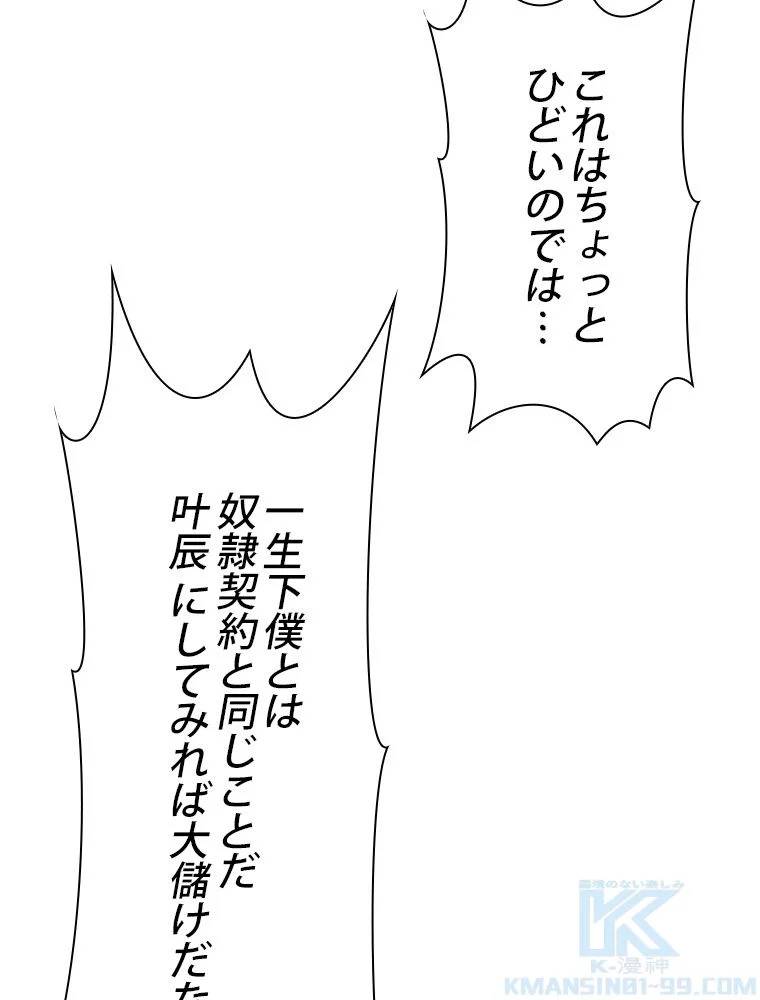 これはちょっと
ひどいのでは…
一生下僕とは
奴隷契約と同じことだ
叶辰 にしてみれば大儲けだた
K-漫神
KMANSIN01-99.COM